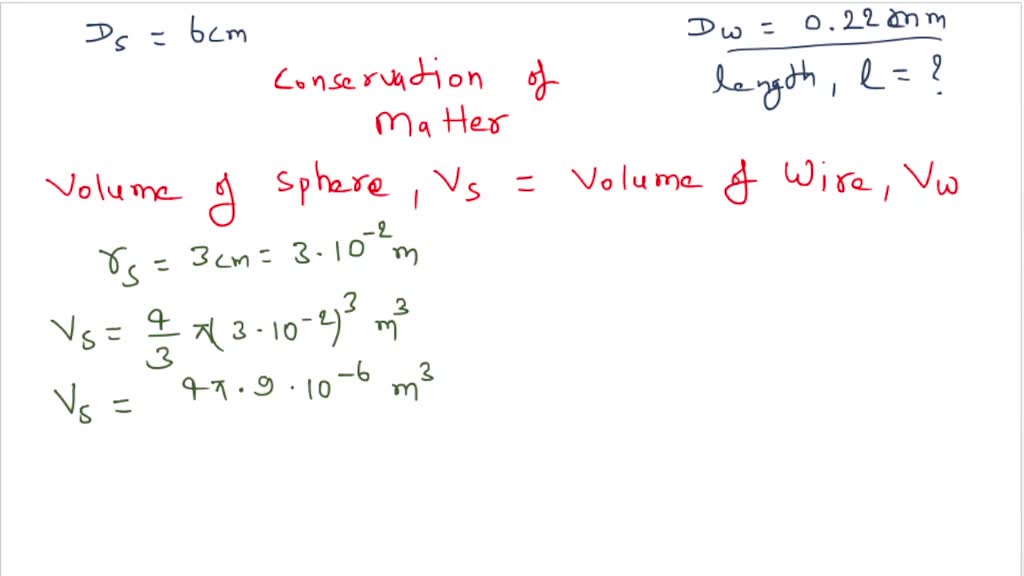 Ds = 6cm
Dw = 0.22 mm
length, l = ?
Conservation of
Matter
Volume of Sphere, Vs = Volume of Wire, Vw
rs = 3cm = 3·10⁻² m
Vs = 4/3 π(3·10⁻²)³ m³
Vs = 4π·9·10⁻⁶ m³